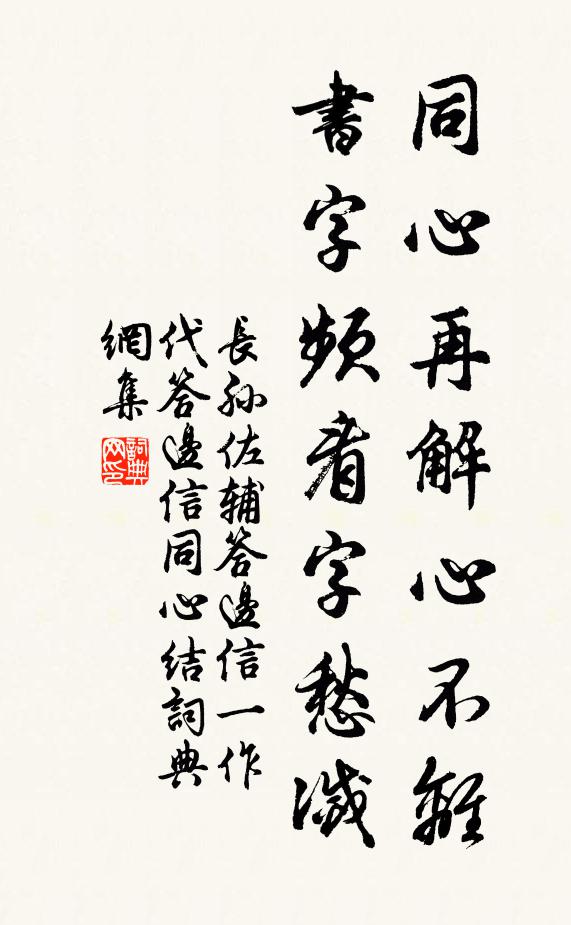 同心再解心不離
書字頻看字愁滅
長孫佐輔答邊信一作
代答邊信同心結詞典
網集
詞典网印